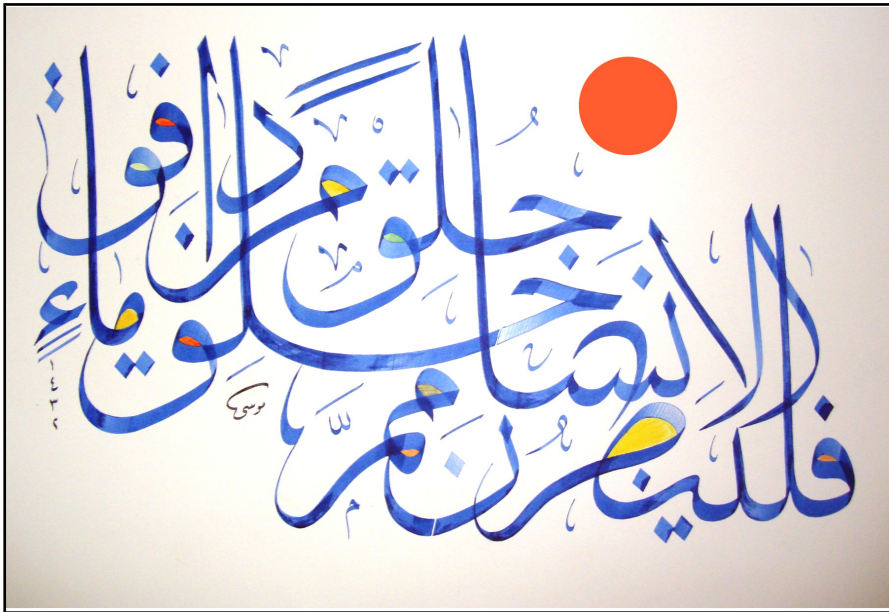 فلينظر الانسان مم خلق
خلق من ماء دافق
موسى
١٤٣٢